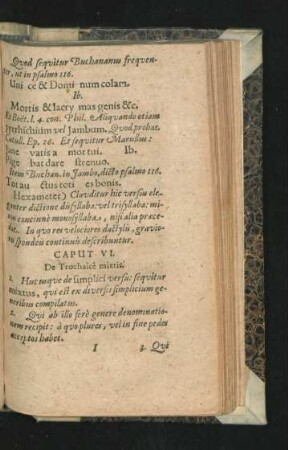 Quod sequitur Buchananus frequen-
ter, ut in psalmo 116.
Uni ce & Domi num colam.
Ib.
Mortis & lacry mas genis &c.
Et Boët. l. 4. con. Phil. Aliquando etiam
pyrrhichium vel Jambum. Quod probat
Catull. Ep. 26. Et sequitur Marullus:
vatis a mor tui. Ib.
Pige bat dare strenuo.
Item Buchan. in Jambo, dicto psalmo 116.
Tot au ctus toti es bonis.
Hexameter) Clauditur hic versus ele-
ganter dictione dissyllaba: vel trisyllaba: mi-
nus concinnè monosyllaba, nisi alia præce-
dat. In quo res velociores dactylis, gravio-
res spondeis continuis describuntur.
CAPUT VI.
De Trochaicè mixtis.
1. Hucusque de simplici versu: sequitur
mixtus, qui est ex diversis simplicium ge-
neribus compilatus.
2. Qui ab illo ferè genere denominatio-
nem recipit: à quo plures, vel in fine pedes
acceptos habet.
I 3. Qui